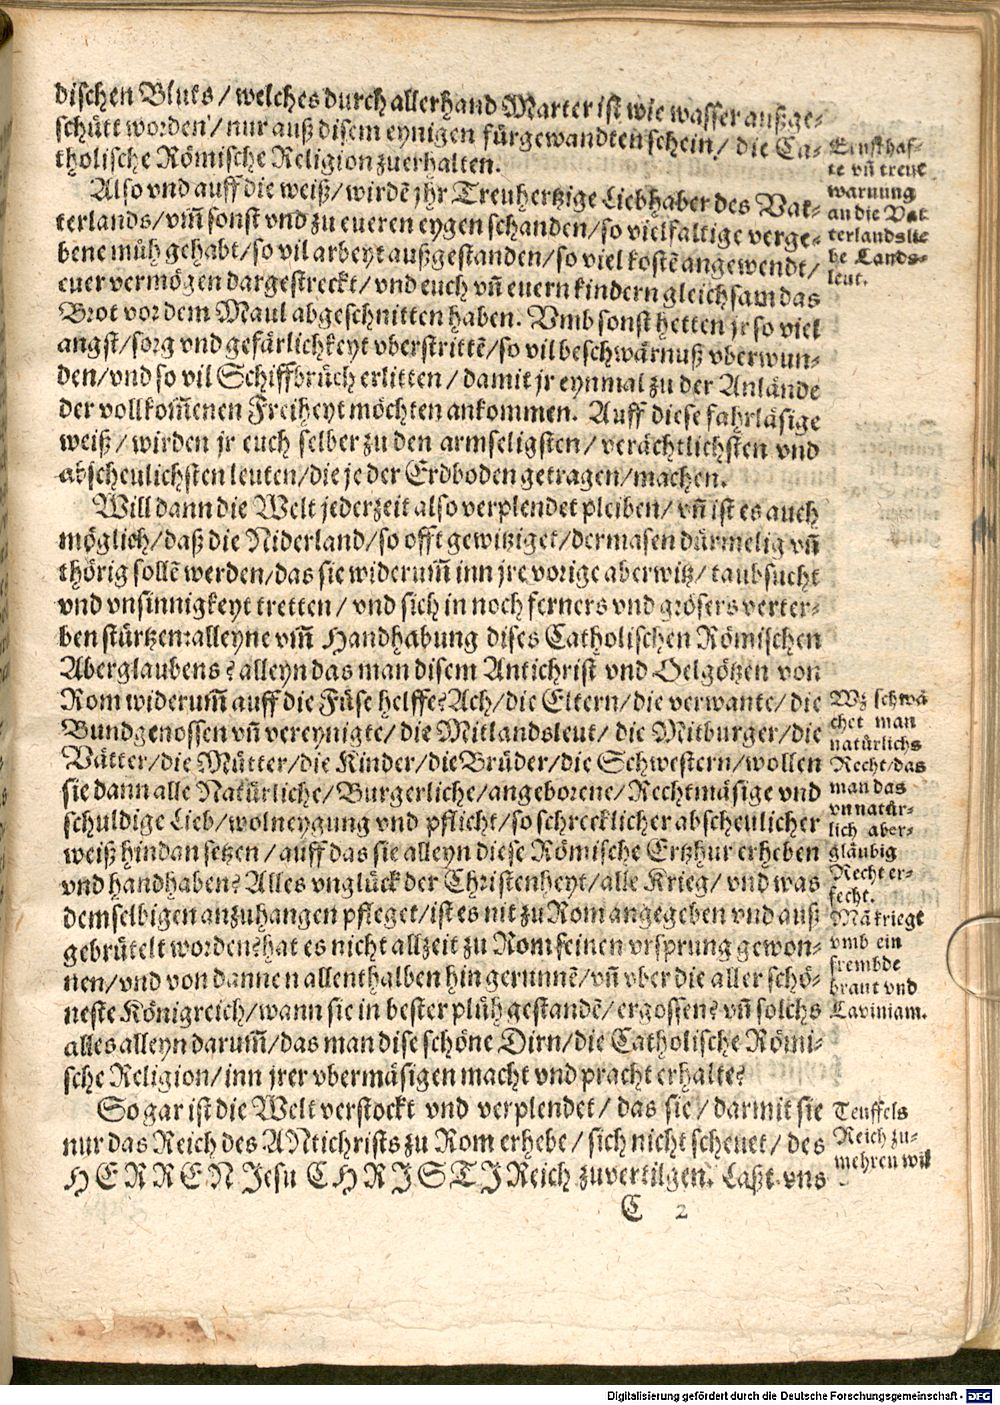 dischen Bluts / welches durch allerhand Marter ist wie wasser außge-
schütt worden / nur auß disem eynigen fürgewandten schein / die Ca-
tholische Römische Religion zuerhalten.
Also vnd auff die weiß / wirdẽ jhr Treuhertzige Liebhaber des Vat-
terlands / vm̃ sonst vnd zu eueren eygen schanden / so vielfaltige verge-
bene müh gehabt / so vil arbeyt außgestanden / so viel kostẽ angewendt /
euer vermögen dargestreckt / vnd euch vñ euern kindern gleichsam das
Brot vor dem Maul abgeschnitten haben. Vmb sonst hetten jr so viel
angst / sorg vnd gefärlichkeyt vberstrittẽ / so vil beschwärnuß vberwun-
den / vnd so vil Schiffbrüch erlitten / damit jr eynmal zu der Anlände
der vollkom̃enen Freiheyt möchten ankommen. Auff diese fahrläsige
weiß / wirden jr euch selber zu den armseligsten / verächtlichsten vnd
abscheulichsten leuten / die je der Erdboden getragen / machen.
Will dann die Welt jederzeit also verplendet pleiben / vñ ist es auch
möglich / daß die Niderland / so offt gewitziget / dermasen dürmelig vñ
thörig sollẽ werden / das sie widerum̃ inn jre vorige aberwitz / taubsucht
vnd vnsinnigkeyt tretten / vnd sich in noch ferners vnd grösers verter-
ben stürtzen: alleyne vm̃ Handhabung dises Catholischen Römischen
Aberglaubens? alleyn das man disem Antichrist vnd Oelgötzen von
Rom widerum̃ auff die Füse helffe? Ach / die Eltern / die verwante / die
Bundgenossen vñ vereynigte / die Mitlandsleut / die Mitburger / die
Vätter / die Mütter / die Kinder / die Brüder / die Schwestern / wollen
sie dann alle Natürliche / Burgerliche / angeborene / Rechtmäsige vnd
schuldige Lieb / wolneygung vnd pflicht / so schrecklicher abscheulicher
weiß hindan setzen / auff das sie alleyn diese Römische Ertzhur erheben
vnd handhaben? Alles vnglück der Christenheyt / alle Krieg / vnd was
demselbigen anzuhangen pfleget / ist es nit zu Rom angegeben vnd auß
gebrütelt worden? hat es nicht allzeit zu Rom seinen vrsprung gewon-
nen / vnd von dannen allenthalben hin gerunnẽ / vñ vber die aller schö-
neste Königreich / wann sie in bester plüh gestandẽ / ergossen? vñ solchs
alles alleyn darum̃ / das man dise schöne Dirn / die Catholische Römi-
sche Religion / inn jrer vbermäsigen macht vnd pracht erhalte?
So gar ist die Welt verstockt vnd verplendet / das sie / darmit sie
nur das Reich des ANtichrists zu Rom erhebe / sich nicht scheuet / des
HERREN Jesu CHRISTI Reich zuvertilgen. Laßt vns
C 2
Ernsthaf-
te vñ treue
warnung
an die Vat
terlandslie
be Lands-
leut.
Wz schwä
chet man
natürlichs
Recht / das
man das
vnnatür-
lich aber-
gläubig
Recht er-
fecht.
Mã kriegt
vmb ein
frembde
braut vnd
Laviniam.
Teuffels
Reich zu-
mehren wil
Digitalisierung gefördert durch die Deutsche Forschungsgemeinschaft - DFG